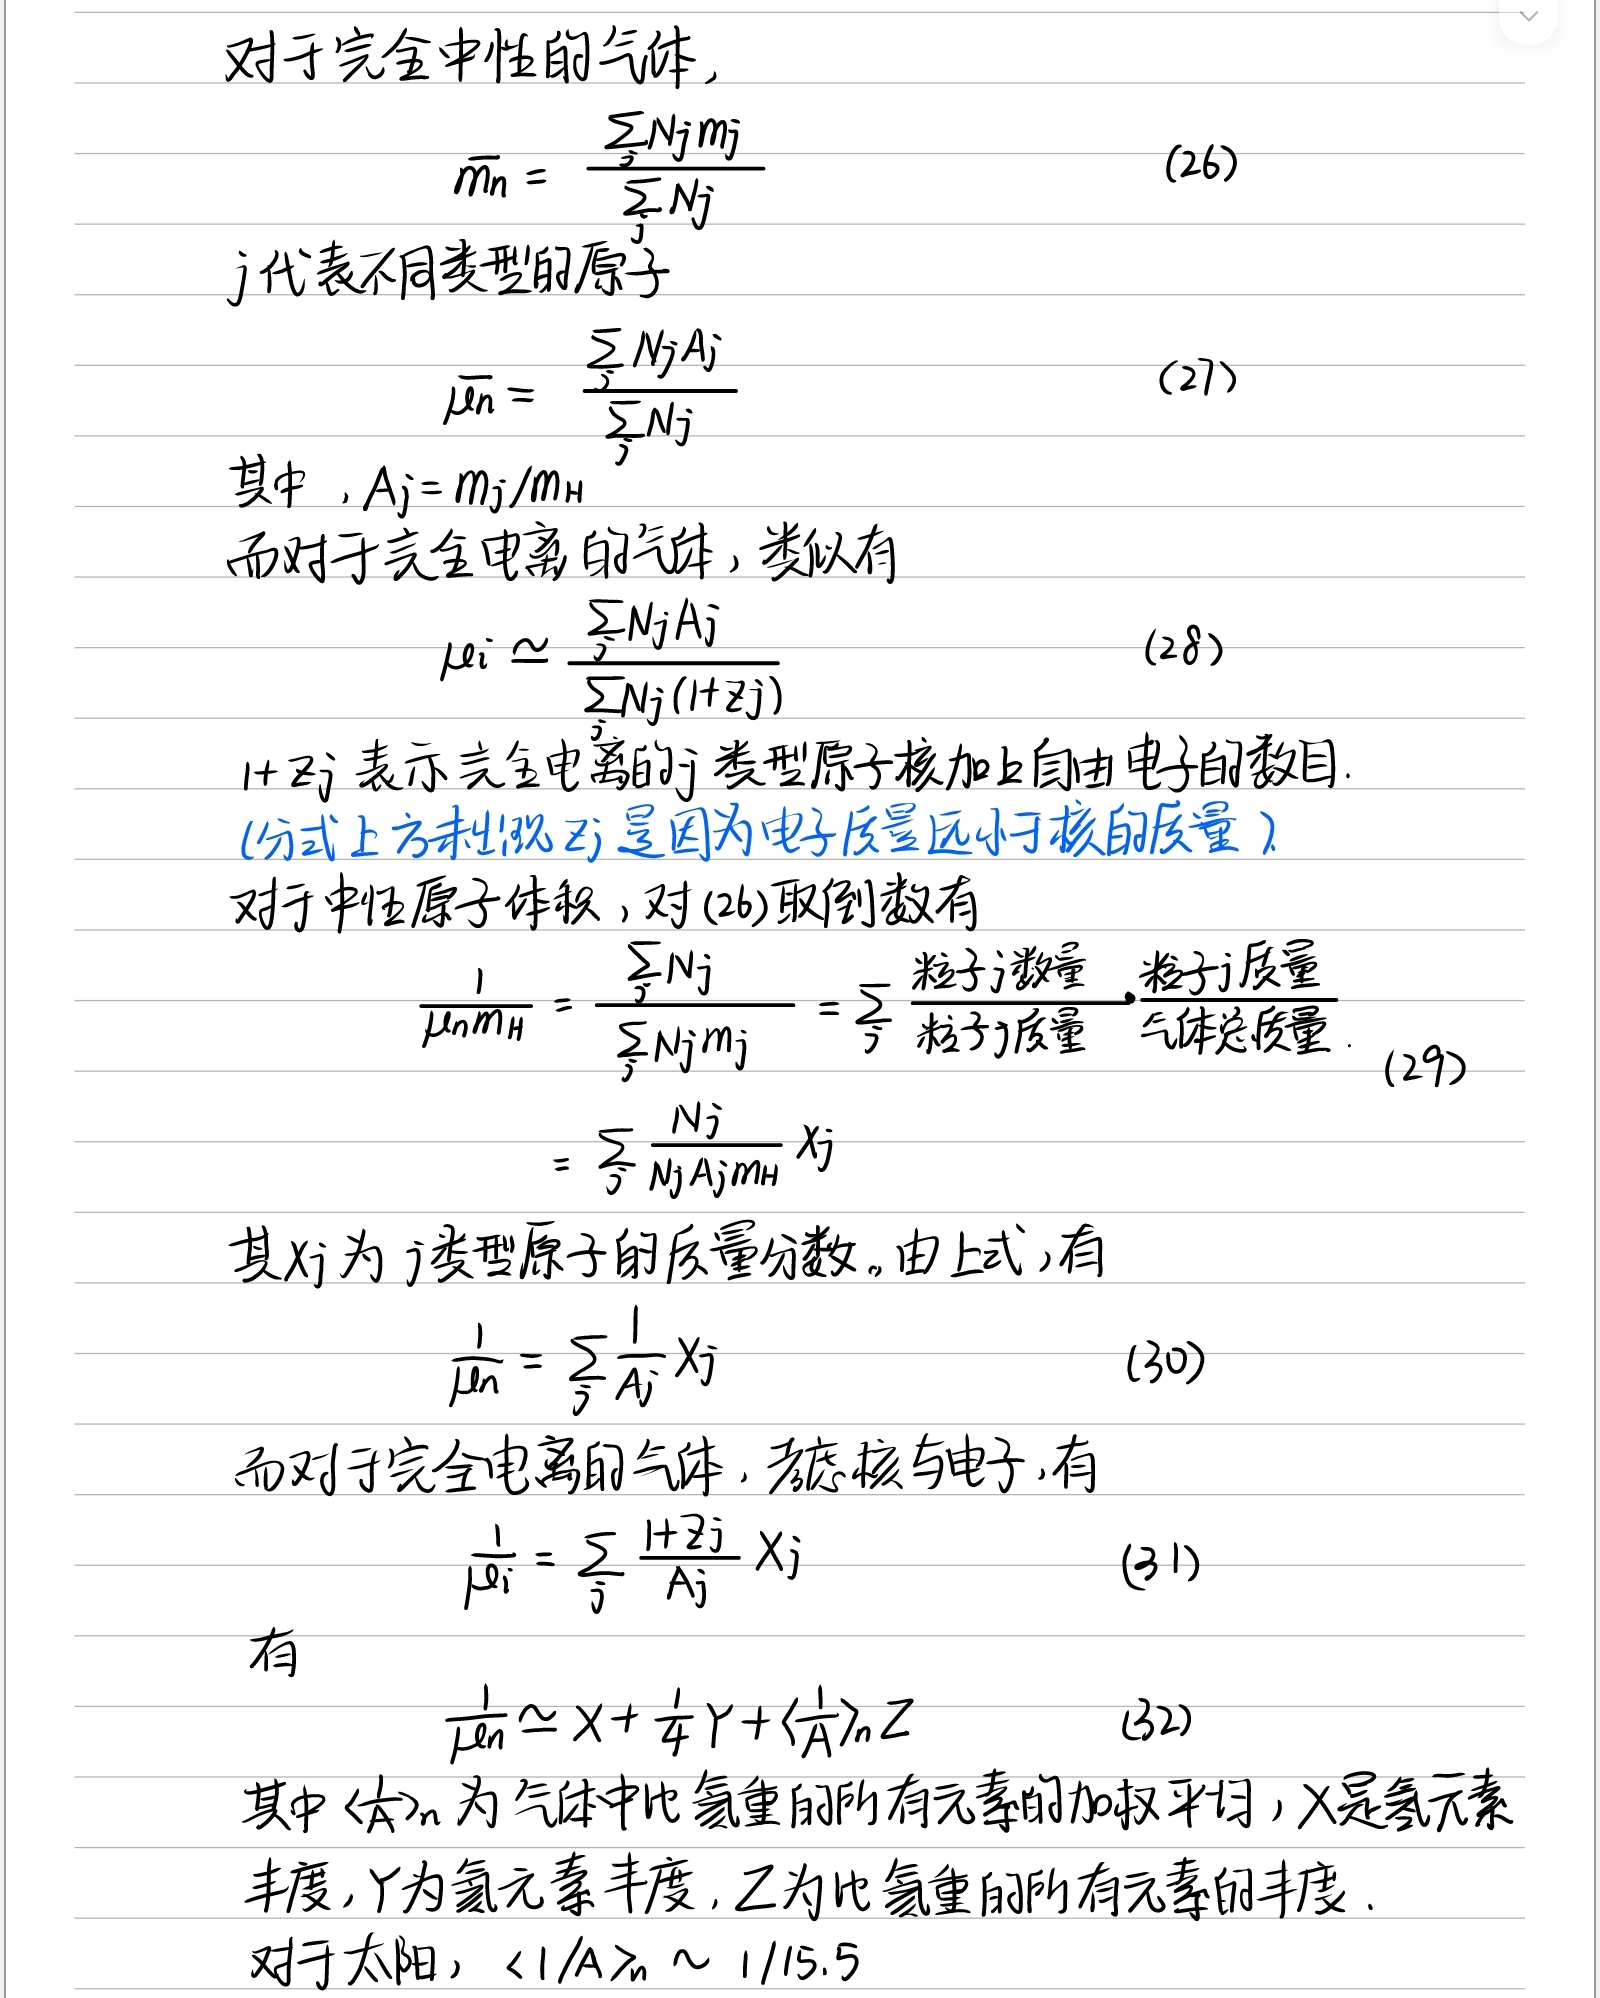 对于完全中性的气体,
m̄n = ∑j Nj mj / ∑j Nj (26)
j代表不同类型的原子
μ̄n = ∑j Nj Aj / ∑j Nj (27)
其中,Aj=mj/mH
而对于完全电离的气体,类似有
μi ≃ ∑j Nj Aj / ∑j Nj(1+Zj) (28)
1+Zj 表示完全电离的j类型原子核加上自由电子的数目.
(分式上方未出现Zj是因为电子质量远小于核的质量).
对于中性原子体积,对(26)取倒数有
1/(μn mH) = ∑j Nj / ∑j Nj mj = ∑j 粒子j数量/粒子j质量 · 粒子j质量/气体总质量.
(29)
= ∑j Nj/(Nj Aj mH) Xj
其Xj为j类型原子的质量分数。由上式,有
1/μn = ∑j 1/Aj Xj (30)
而对于完全电离的气体,考虑核与电子,有
1/μi = ∑j (1+Zj)/Aj Xj (31)
有
1/μn ≃ X + 1/4 Y + <1/A>n Z (32)
其中<1/A>n为气体中比氦重的所有元素的加权平均,X是氢元素
丰度,Y为氦元素丰度,Z为比氦重的所有元素的丰度.
对于太阳, <1/A>n ~ 1/15.5